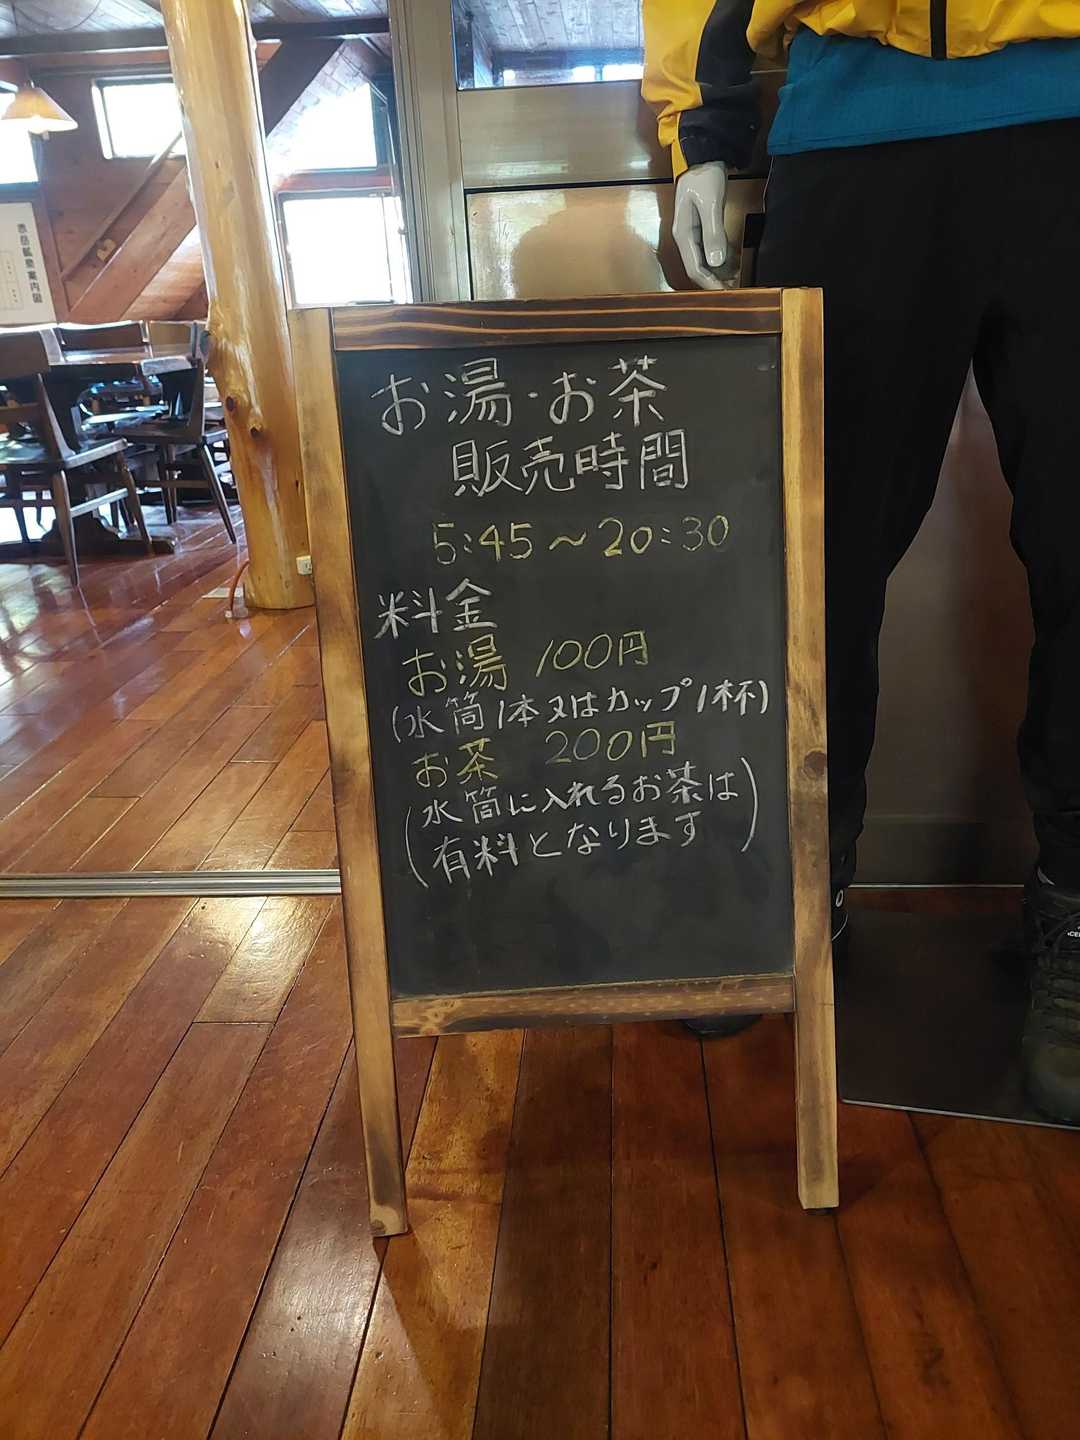 お湯・お茶
販売時間
5:45～20:30
料金
お湯 100円
(水筒1本又はカップ1杯)
お茶 200円
(水筒に入れるお茶は
有料となります)
赤岳鉱泉案内図